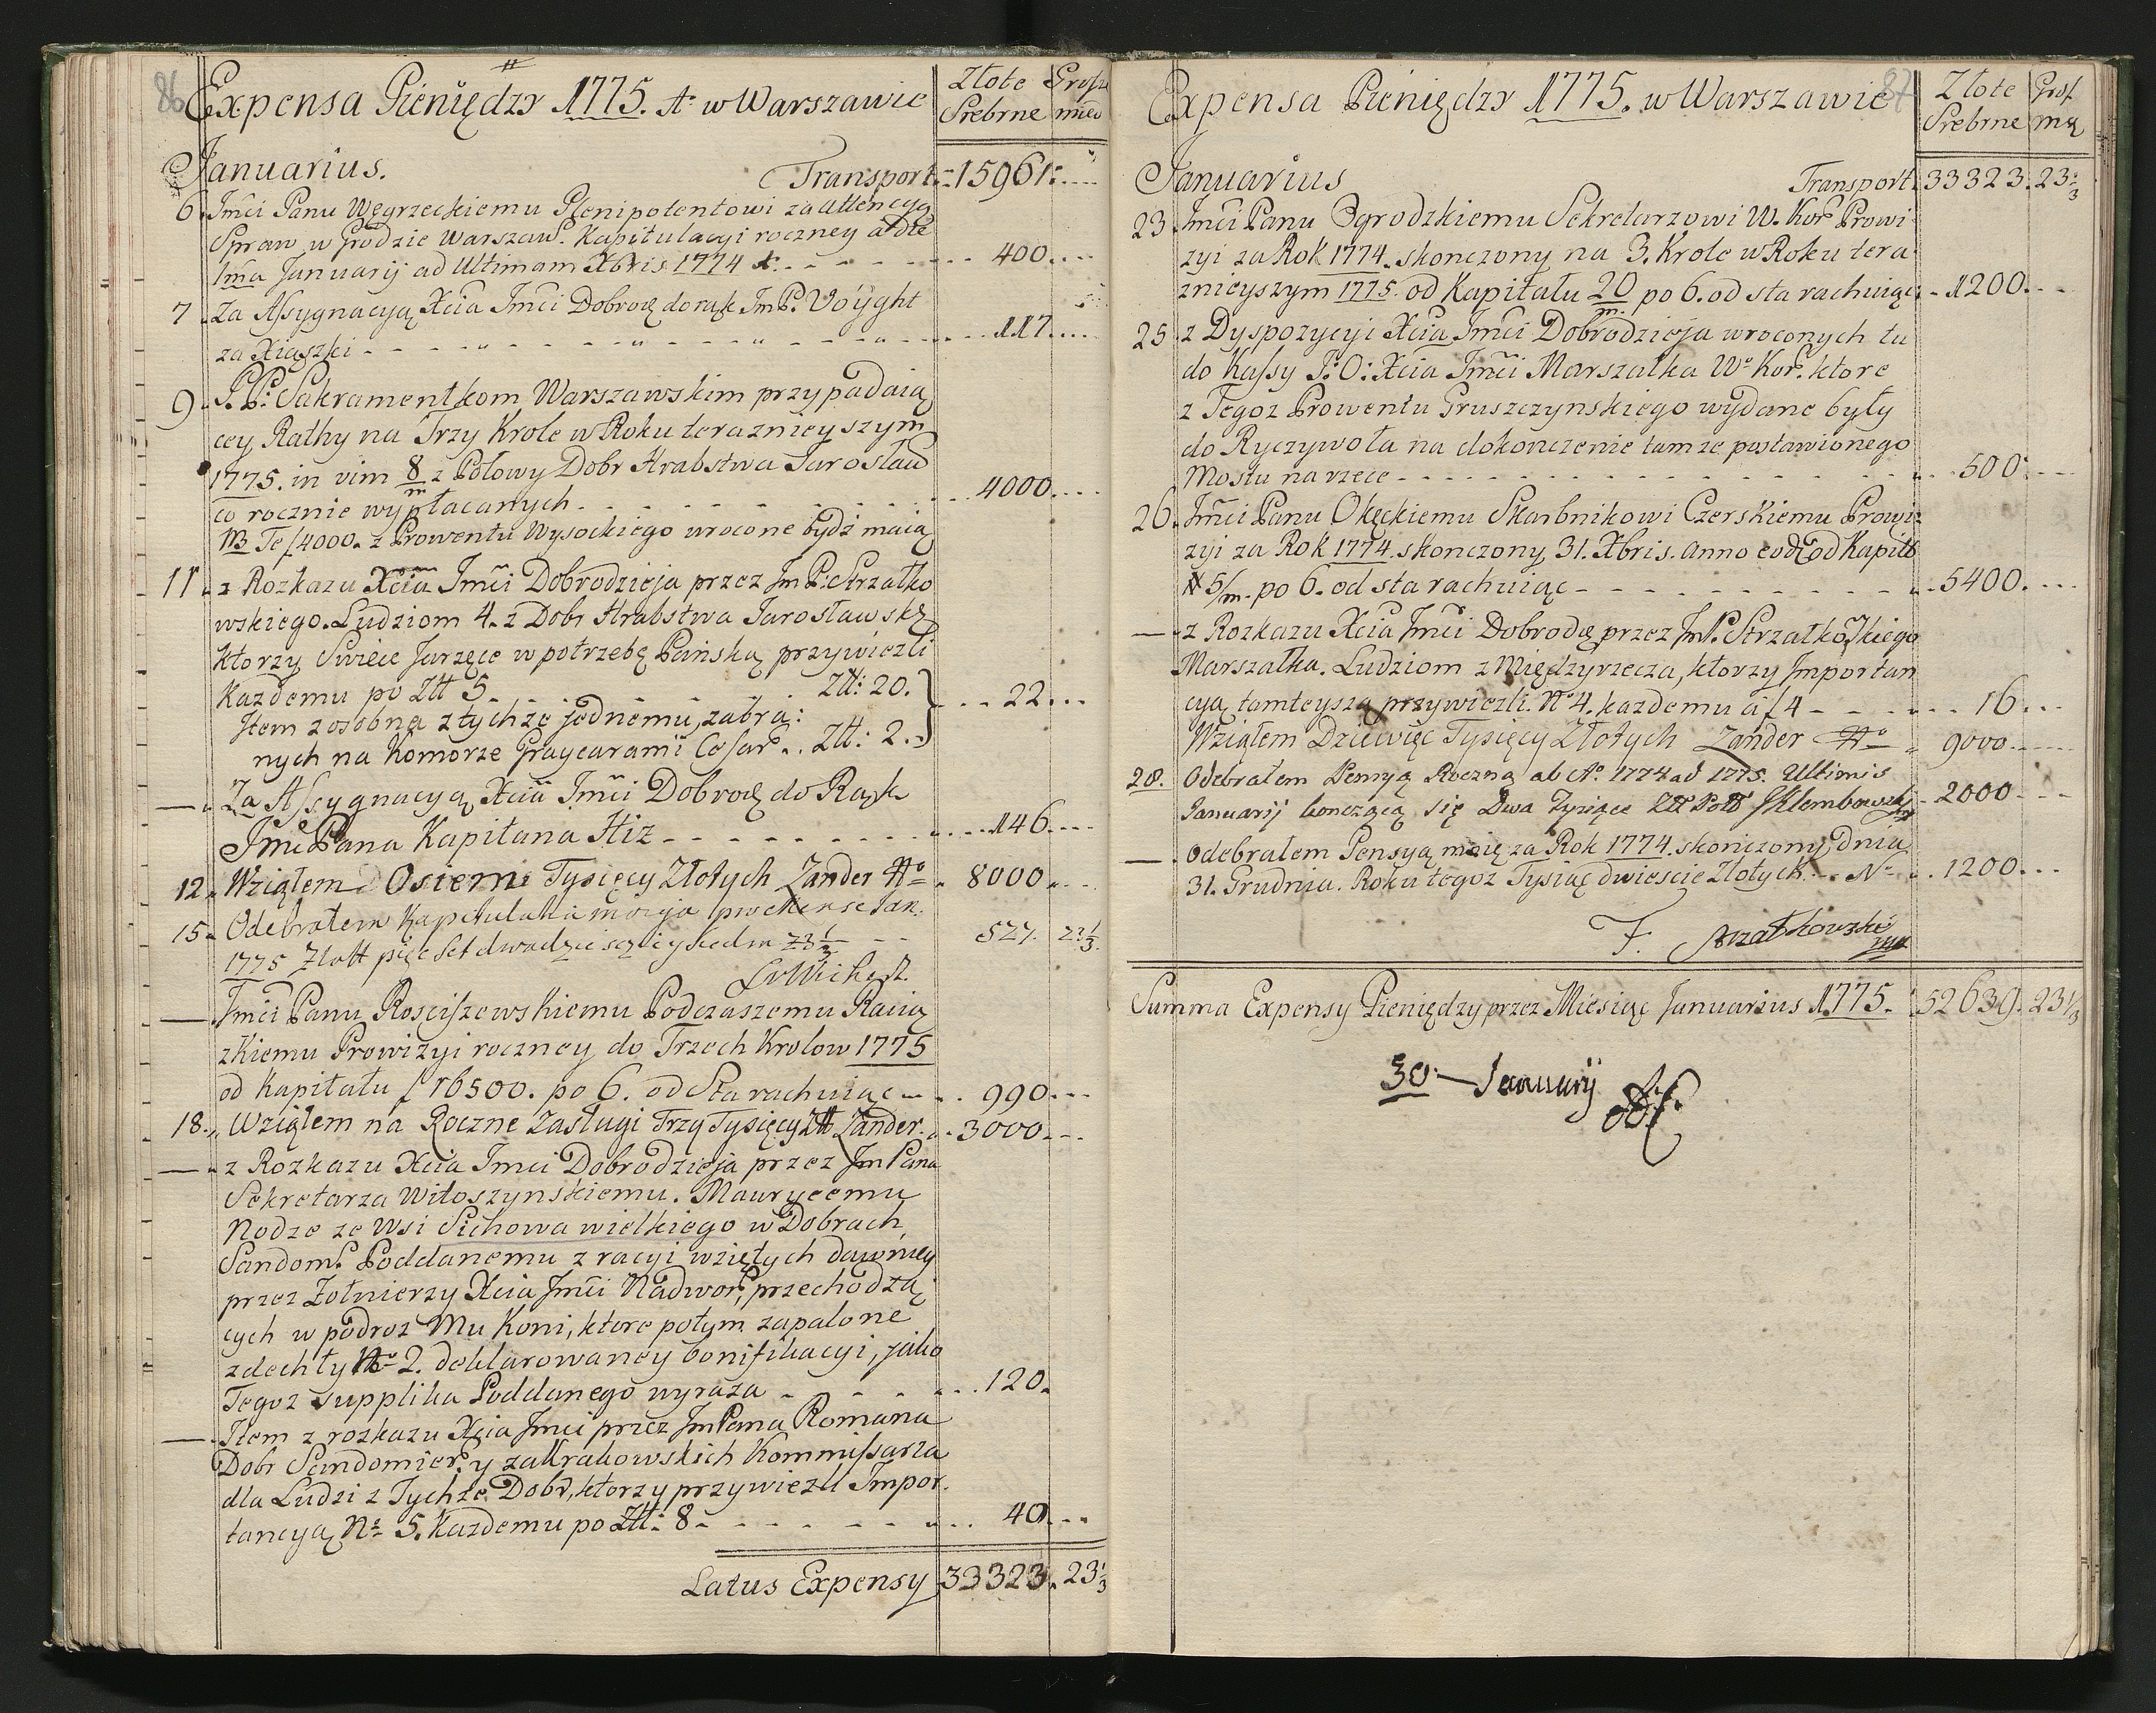 86
Expensa Pieniędzy 1775. Ao w Warszawie
Złote Grosze
Srebrne
Januarius. Transport 15961.
6. Jmci Panu Węgrzeckiemu Plenipotentowi za attencyą
Spraw w Grodzie Warszaw. Kapitulacyi roczney a die
1ma Januarij ad Ultimam Xbris 1774 400.
7. Za Assygnacyą Xcia Jmci Dobrodz do rąk JmP. Voÿght
za Xiąszki 117.
9. P.P. Sakramentkom Warszawskim przypadaią
cey Rathy na Trzy Krole w Roku teraznieyszym
1775. in vim 8/m z Połowy Dobr Hrabstwa Jarosław
co rocznie wypłacanych 4000.
NB Te f 4000. z Prowentu Wysockiego wrocone bydź maią
11. z Rozkazu Xcia Jmci Dobrodzieja przez JmP. Strzałko
wskiego. Ludziom 4. z Dobr Hrabstwa Jarosławsk
ktorzy Swiece Jarzęce w potrzebę Pańską przywiezli
Kazdemu po Złł 5 Złł: 20. 22
Item z osobna z tychze jednemu, zabra:
nych na Komorze Graycarami Cesar. Złł: 2.
— Za Assygnacyą Xcia Jmci Dobrodz do Rąk
Jmci Pana Kapitana Hiz 146.
12. Wziąłem Osiem Tysięcy Złotych Zander 8000
15. Odebrałem Kapitulatia moija pro Mense Jan.
1775 Zlott pięcset dwadziesczie y siedm 23 1/3 527. 23 1/3.
— Jmci Panu Rosciszewskiemu Podczaszemu Racią
zkiemu Prowizyi roczney do Trzech Krolow 1775
od Kapitału f 16500. po 6. od Sta rachuiąc 990
18. Wziąłem na Roczne Zasługi Trzy Tysięcy Złł Zander. 3000
— z Rozkazu Xcia Jmci Dobrodzieja przez Jm Pana
Sekretarza Witoszynskiemu. Maurycemu
Nodze ze Wsi Sichowa wielkiego w Dobrach
Sandom. Poddanemu z racyi wziętych dawniey
przez Żołnierzy Xcia Jmci Nadwor, przechodzą
cych w podroz Mu Koni, ktore potym zapalone
zdechły No 2. deklarowaney bonifikacyi, jako
Tegoz supplika Poddanego wyraza 120.
— Item z rozkazu Xcia Jmci przez Jm Pana Romana
Dobr Sandomier. y zaKrakowskich Kommissarza
dla Ludzi z Tychze Dobr, ktorzy przywiezli Impor.
tancyą No 5. Kazdemu po Złł: 8 40
Latus Expensy 33323. 23 1/3
87
Expensa Pieniędzy 1775. w Warszawie
Złote Gros
Srebrne
Januarius Transport 33323. 23 1/3
23. Jmci Panu Ogrodzkiemu Sekretarzowi W. Kor Prowi
zyi za Rok 1774. skonczony na 3. Krole w Roku tera
znieyszym 1775. od Kapitału 20/m po 6. od sta rachuiąc 1200.
25. z Dyspozycyi Xcia Jmci Dobrodzieja wroconych tu
do Kassy J: O: Xcia Jmci Marszałka Wo Kor. ktore
z Tegoz Prowentu Gruszczynskiego wydane były
do Ryczywoła na dokonczenie tamze postawionego
Mostu na rzece 500.
26. Jmci Panu Okęckiemu Skarbnikowi Czerskiemu Prowi
zyi za Rok 1774. skonczony 31. Xbris. anno eod. od Kapit
5/m. po 6. od sta rachuiąc 5400.
— z Rozkazu Xcia Jmci Dobrodz przez JmP. Strzałkoskiego
Marszałka. Ludziom z Międzyrzecza, ktorzy Importan
cyą tamteyszą przywiezli. No 4. kazdemu á f 4 16.
Wziąłem Dziewięc Tysięcy Złotych Zander 9000
28. Odebrałem Pensyą Roczną ab Ao 1774 ad 1775. Ultimis
Januarij konczącą się Dwa Tysiące Złł 2000
— Odebrałem Pensyą moię za Rok 1774. skończony Dnia
31. Grudnia. Roku tegoz Tysiąc dwiescie Złotych. No 1200.
F. Strzałkowski
Summa Expensy Pieniędzy przez Miesiąc Januarius 1775. 52639. 23 1/3
30 Januarij